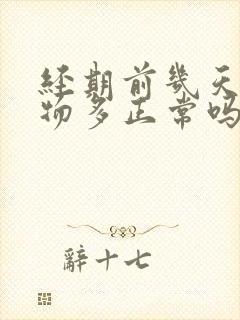 经期前几天
物多正常吗
辭十七